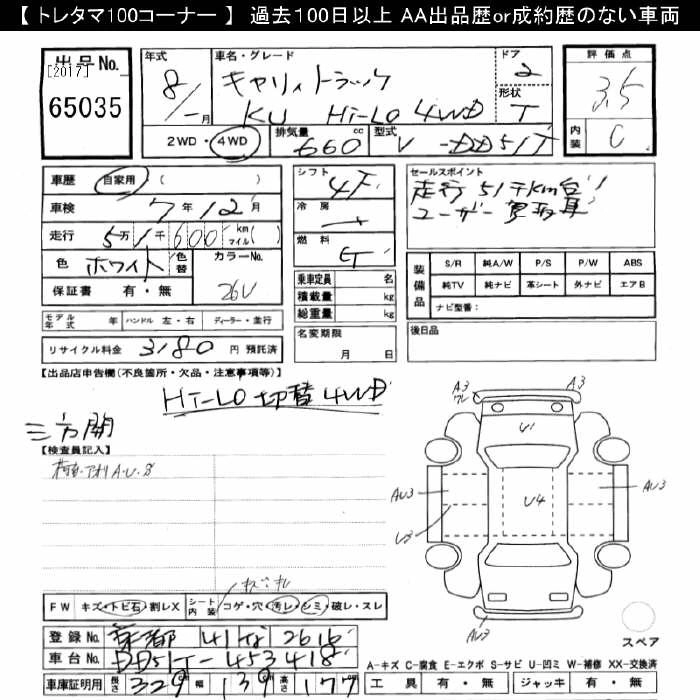 【 トレタマ100コーナー 】 過去100日以上 AA出品歴or成約歴のない車両
出品No.
[2017]
65035
年式
8/-月
車名・グレード
キャリィトラック
KU Hi-Lo 4WD
ドア
2
形状
T
2WD・4WD
排気量 660 cc
型式 V-DD51T
評価点
3.5
内装
C
車歴 自家用 ( )
車検 7年12月
走行 5万1千600 km マイル( )
色 ホワイト
色替
カラーNo.
26U
保証書 有・無
シフト
4F
冷房
燃料
乗車定員 名
積載量 kg
総重量 kg
名変期限
月 日
セールスポイント
走行51千km台!
ユーザー買取車
装備品
S/R 純A/W P/S P/W ABS
純TV 純ナビ 革シート 外ナビ エアB
ナビ型番:
後日品
モデル年式 年 ハンドル 左・右 ディーラー・並行
リサイクル料金 3180 円 預託済
【出品店申告欄(不良箇所・欠品・注意事項等)】
Hi-Lo切替4WD
三方開
【検査員記入】
A3
A3
U1
AU3
U4
AU3
U3
AU3
スペア
FW キズ・トビ石・割レX
シート内装 コゲ・穴・汚レ・シミ・破レ・スレ
登録No. 京都 41 な 2616
車台No. DD51T-453418
車庫証明用 長さ 329 幅 139 高さ 177
A-キズ C-腐食 E-エクボ S-サビ U-凹ミ W-補修 XX-交換済
工具 有・無 ジャッキ 有・無